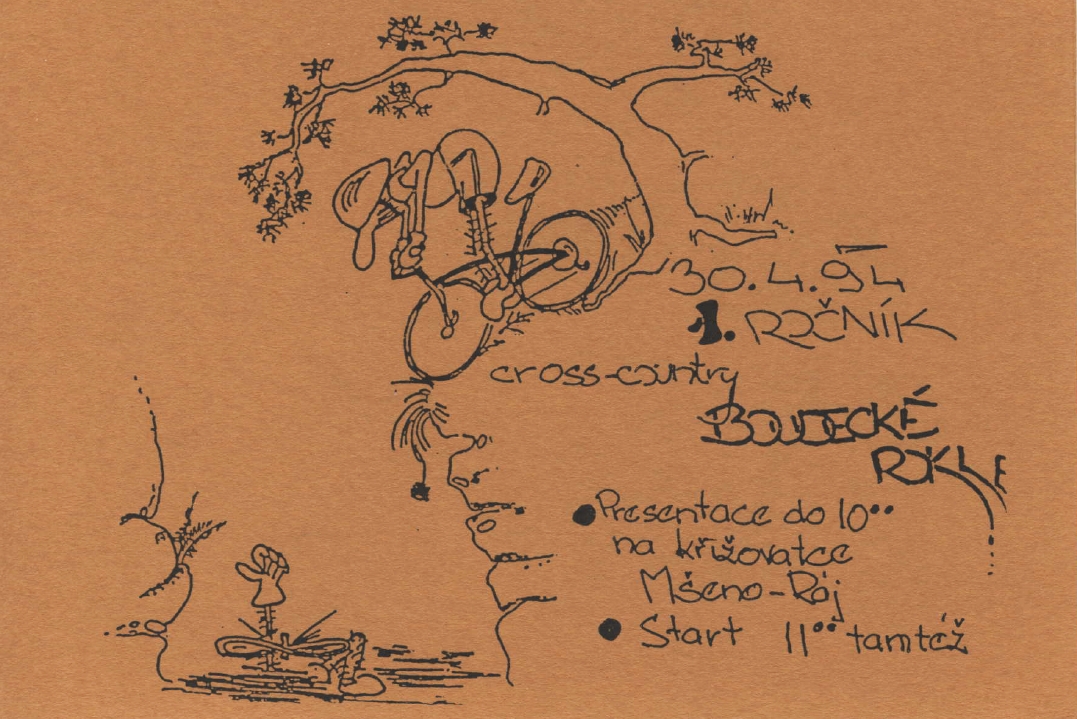 30.4.94
1. ROČNÍK
cross-country
BOUDECKÉ
ROKLE
● Presentace do 10°°
na křižovatce
Mšeno-Ráj
● Start 11°° tamtéž